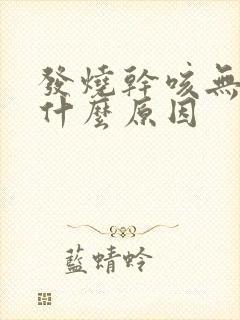 發燒幹咳無
什麼原因
藍蜻蛉